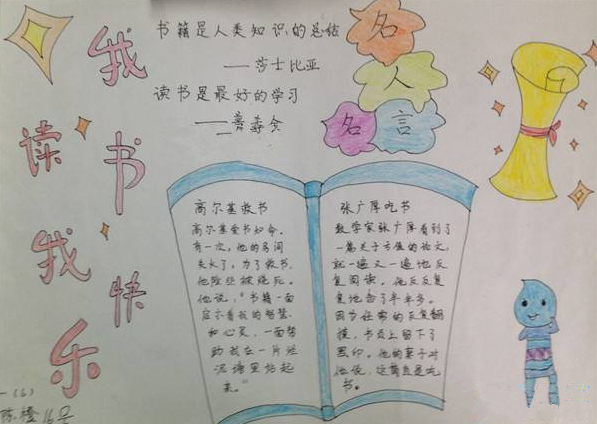 我读书我快乐
书籍是人类知识的总结
——莎士比亚
读书是最好的学习
名
人
名
言
高尔基救书
高尔基爱书如命。
有一次,他的房间
失火了,为了救书,
他险些被烧死。
他说:"书籍一面
启示着我的智慧
和心灵,一面帮
助我在一片烂
泥塘里站起
来。"
张广厚吃书
数学家张广厚看到了
一篇关于方值的论文,
就一遍又一遍地反
复阅读。他反反复
复地念了半年多。
因为经常的反复翻
摸,书页上留下了
黑印。他的妻子对
他说,这简直是吃
书。
一(6)
陈橙 16号